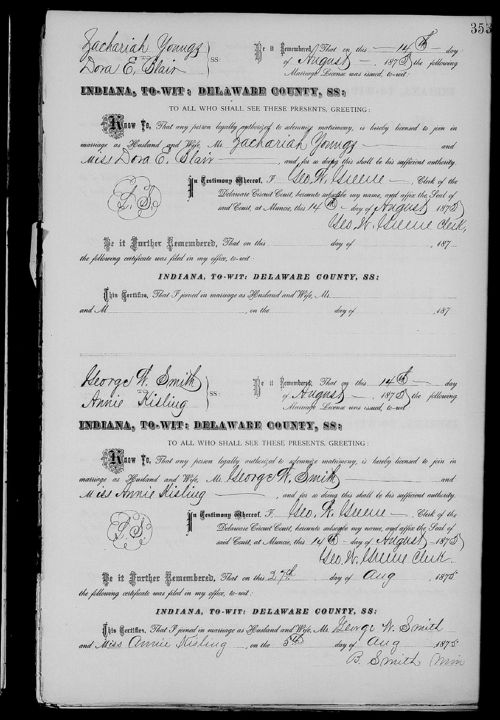 353
Zachariah Youngs
Dora E. Blair
SS:
Be it Remembered, That on this 14th day
of August, 1875 the following
Marriage License was issued, to-wit:
INDIANA, TO-WIT: DELAWARE COUNTY, SS:
TO ALL WHO SHALL SEE THESE PRESENTS, GREETING:
Know Ye, That any person legally authorized to solemnize matrimony, is hereby licensed to join in
marriage as Husband and Wife, Mr. Zachariah Youngs and
Miss Dora E. Blair, and for so doing this shall be his sufficient authority.
In Testimony Whereof, I Geo. W. Greene, Clerk of the
Delaware Circuit Court, hereunto subscribe my name, and affix the Seal of
said Court, at Muncie, this 14th day of August 1875
Geo. W. Greene Clerk.
Be it Further Remembered, That on this day of 187
the following certificate was filed in my office, to-wit:
INDIANA, TO-WIT: DELAWARE COUNTY, SS:
This Certifies, That I joined in marriage as Husband and Wife, Mr.
and M , on the day of 187
George W. Smith
Annie Kisling
SS:
Be it Remembered, That on this 14th day
of August, 1875 the following
Marriage License was issued, to-wit:
INDIANA, TO-WIT: DELAWARE COUNTY, SS:
TO ALL WHO SHALL SEE THESE PRESENTS, GREETING:
Know Ye, That any person legally authorized to solemnize matrimony, is hereby licensed to join in
marriage as Husband and Wife, Mr. George W. Smith and
Miss Annie Kisling, and for so doing this shall be his sufficient authority.
In Testimony Whereof, I Geo. W. Greene, Clerk of the
Delaware Circuit Court, hereunto subscribe my name, and affix the Seal of
said Court, at Muncie, this 14th day of August 1875
Geo. W. Greene Clerk.
Be it Further Remembered, That on this 27th day of Aug, 1875
the following certificate was filed in my office, to-wit:
INDIANA, TO-WIT: DELAWARE COUNTY, SS:
This Certifies, That I joined in marriage as Husband and Wife, Mr. George W. Smith
and Miss Annie Kisling, on the 5th day of Aug 1875
B. Smith Min